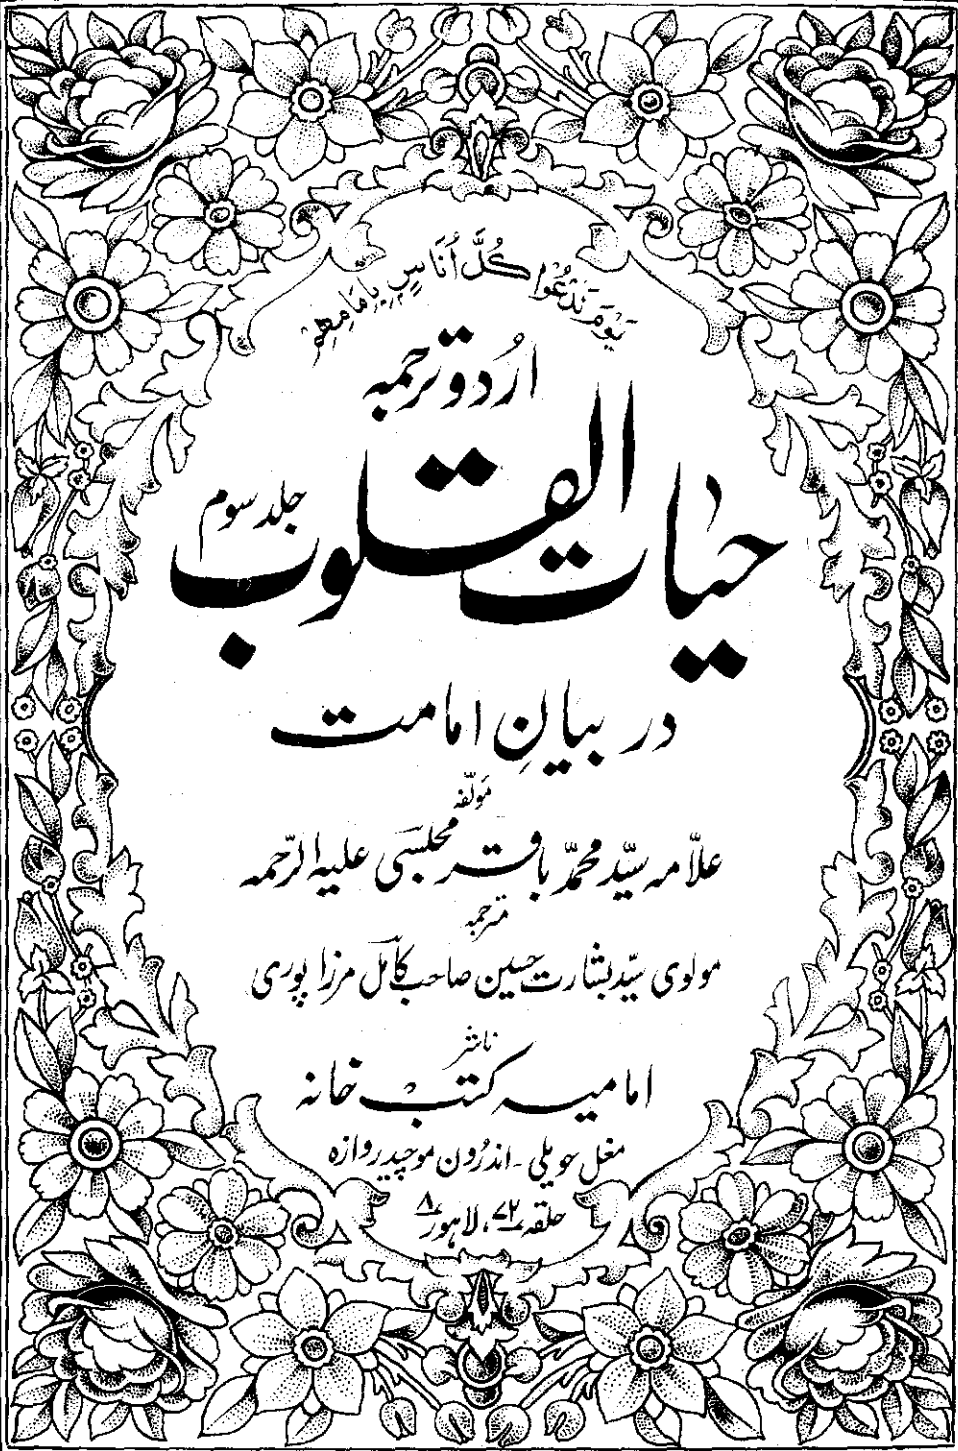 يَوْمَ نَدْعُوْا كُلَّ اُنَاسٍ بِاِمَامِهِمْ
اُردو ترجمہ
حیات القلوب
جلد سوم
در بیانِ امامت
مؤلّفہ
علاّمہ سیّد محمّد باقر مجلسی علیہ الرّحمہ
مترجمہ
مولوی سیّد بشارت حسین صاحب کامل مرزا پوری
ناشر
امامیہ کتب خانہ
مغل حویلی - اندرُون موچیدروازہ
حلقہ ۷۲، لاہور ۸